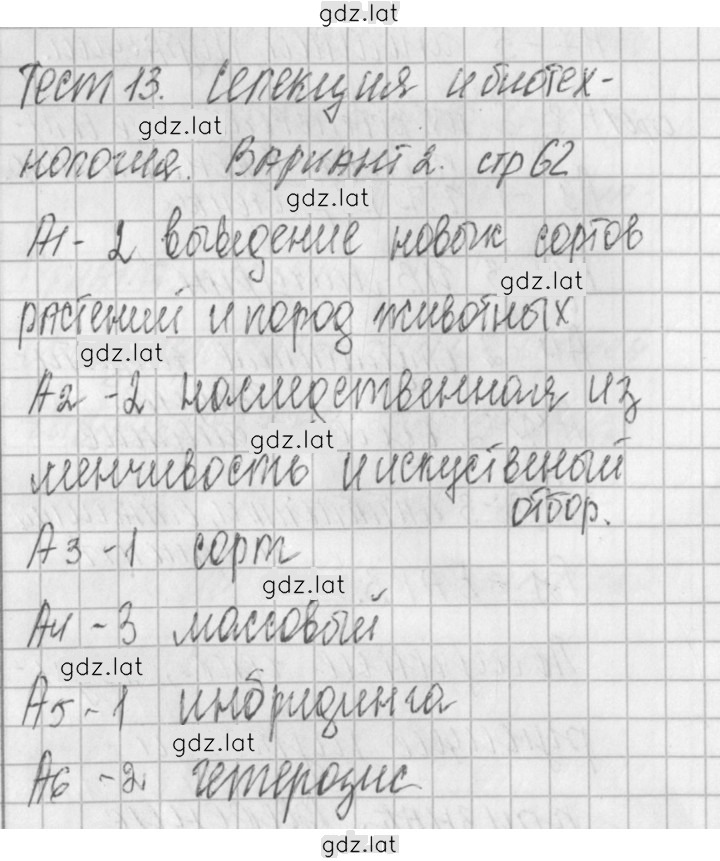 gdz.lat
Тест 13. Селекция и биотех-
gdz.lat
нология. Вариант 2. стр 62
gdz.lat
А1 - 2 выведение новых сортов
gdz.lat
растений и пород животных
gdz.lat
А2 - 2 наследственная из
gdz.lat
менчивость и искуственый
отбор.
А3 - 1 сорт
gdz.lat
А4 - 3 массовый
gdz.lat
А5 - 1 инбридинга
gdz.lat
А6 - 2 гетерозис
gdz.lat